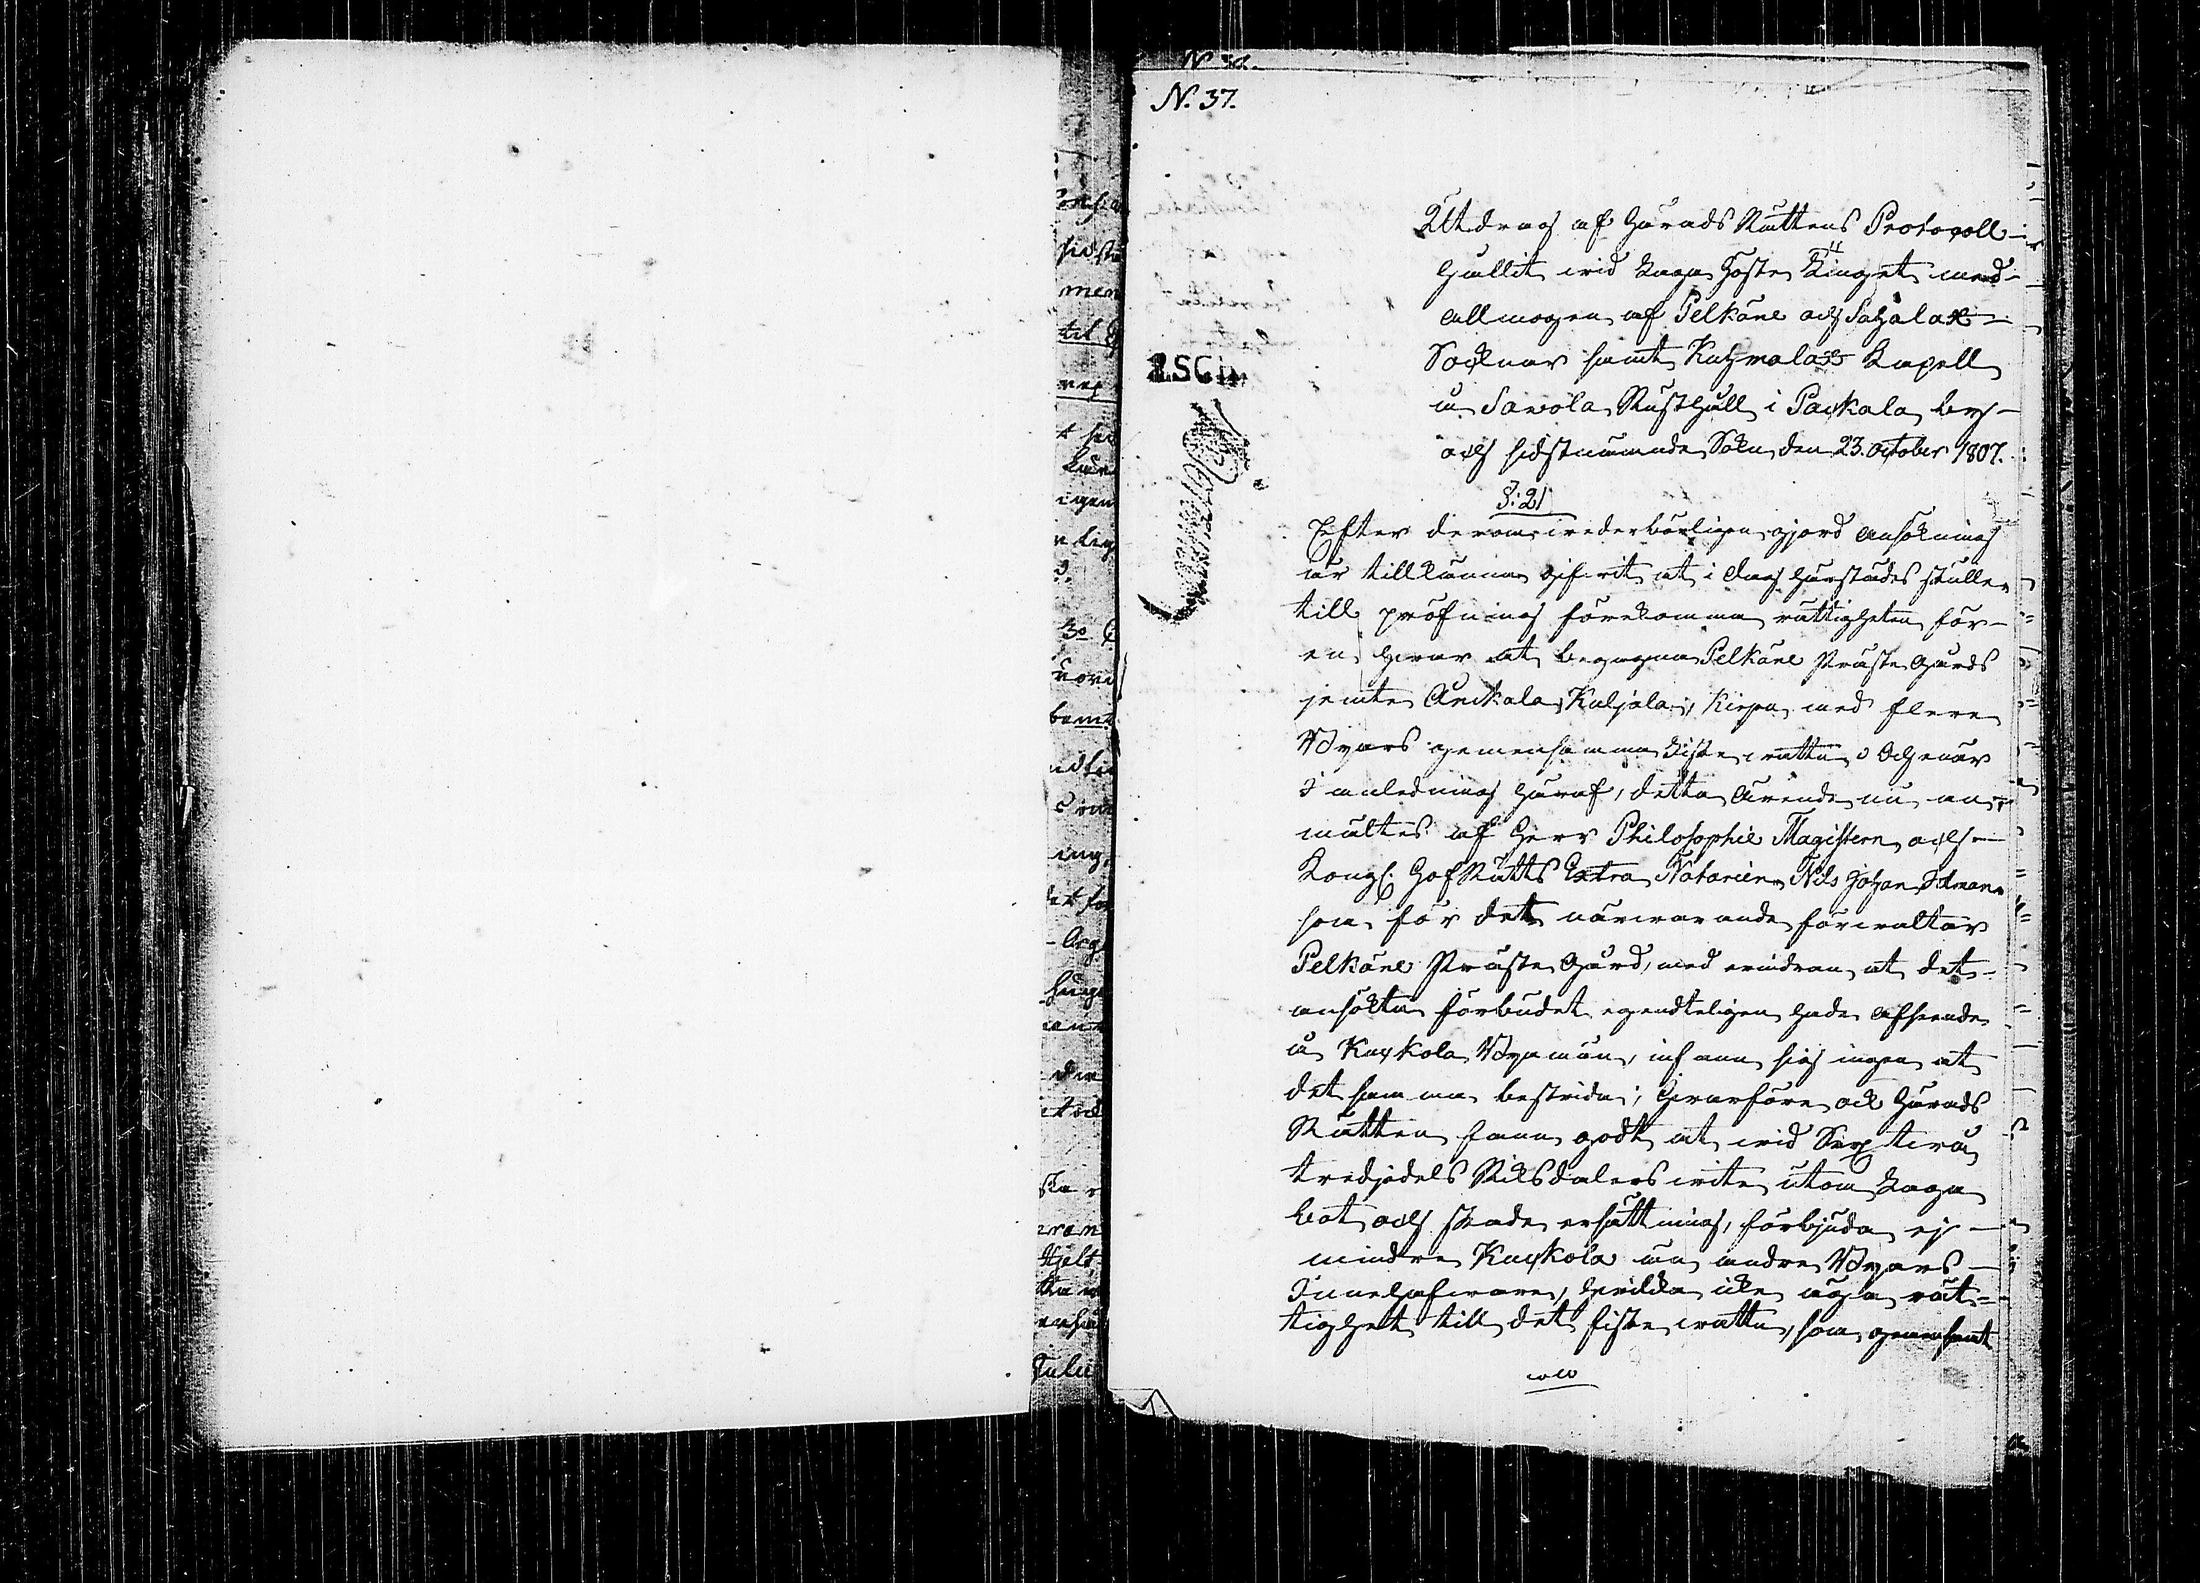 N. 37.
Utdrag af Härads Rättens Protocoll
hållit vid Laga Höste Tinget med
allmogen af Pelkäne och Sahalax
Socknar samt Kuhmalax Kapell
å Sawola Rusthåll i Packala by
och sidstnämnde Sokn den 23. October 1807.
§: 21
Efter derom vederbörligen gjord ansökning
är tillkänna gifvit at i dag härstädes skulle
till pröfning förekomma rättigheten för
en hvar at begagna Pelkäne Präste Gårds
jemte Anikala, Kuljala, Kirpu med flere
Byars gemensamma Fiske vatten. Och enär
I anledning häraf, detta ärende nu an-
mältes af Herr Philosophie Magistern och
Kongl. Hof Rätts Extra Notarien Nils Johan Idman
som för det närvarande förvaltar
Pelkäne Präste Gård, med erindran at det
ansökta förbudet egendteligen hade afseende
å Kuckola Byamän, infann sig ingen at
det samma bestrida; Hvarföre ock Härads
Rätten fann godt at vid Sex tivå
tredjedels Riksdalers vite utom Laga
bot och skade ersättning, förbjuda ej
mindre Kuckola än andre Byars
Innehafvare, hvilka icke äga rät-
tighet till det fiske vatten, som gemensamt